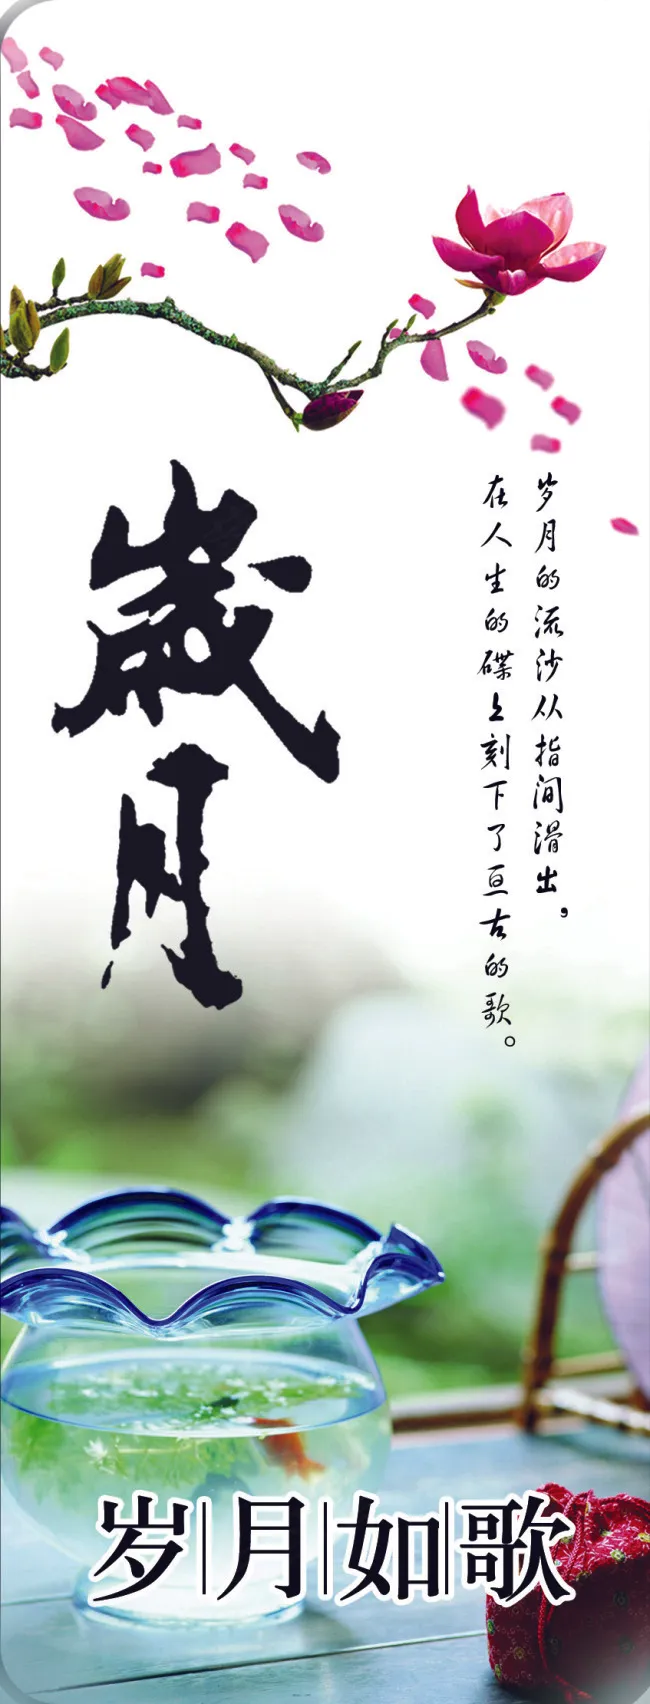 歲月
岁月的流沙从指间滑出，
在人生的碟上刻下了亘古的歌。
岁|月|如|歌